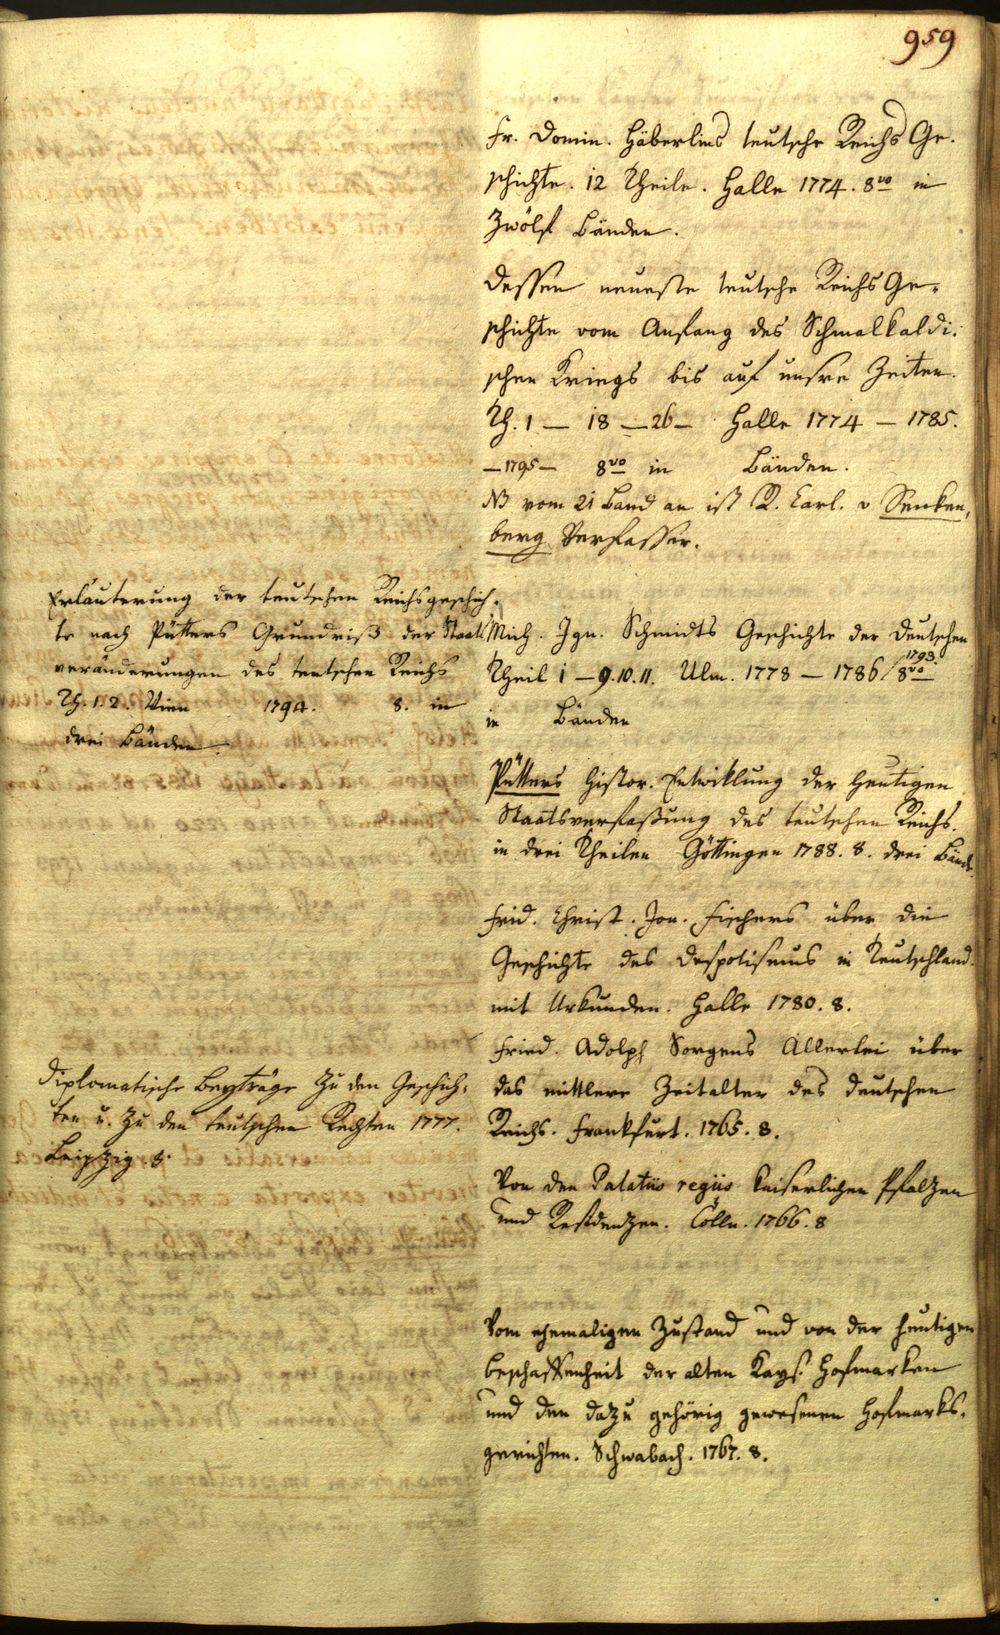 959
Fr. Domin. Häberlins teutsche Reichs Ge-
schichte. 12 Theile. Halle 1774. 8vo in
Zwölf Bänden.
Dessen neueste teutsche Reichs Ge-
schichte vom Anfang des Schmalkaldi-
schen Kriegs bis auf unsre Zeiten.
Th. 1 — 18 — 26 — Halle 1774 — 1785.
— 1795 — 8vo in Bänden.
NB vom 21 Band an ist R. Carl. v Senken-
berg Verfasser.
Erläuterung der teutschen Reichsgeschich-
te nach Pütters Grundriß der Staats
veränderungen des teutschen Reichs
Th. 1. 2. Wien 1794. 8. in
drei Bänden.
Mich. Ign. Schmidts Geschichte der Deutschen
Theil 1 — 9. 10. 11. Ulm. 1778 — 1786 / 1793. 8vo
in Bänden
Pütters histor. Entwicklung der heutigen
Staatsverfaßung des teutschen Reichs.
in drei Theilen Göttingen 1788. 8. drei Bände.
Frid. Christ. Jon. Fischers über die
Geschichte des Despotismus in Teutschland.
mit Urkunden. Halle 1780. 8.
Fried. Adolph Sorgens Allerlei über
das mittlere Zeitalter des deutschen
Reichs. Frankfurt. 1765. 8.
Diplomatische Beyträge zu den Geschich-
ten u. zu den teutschen Rechten 1777.
Leipzig 8.
Von den Palatiis regiis Kaiserlichen Pfalzen
und Residenzen. Cölln. 1766. 8
Vom ehemaligen Zustand und von der heutigen
Beschaffenheit der alten Kays. Hofmarken
und den dazu gehörig gewesenen Hofmarks-
gerichten. Schwabach. 1767. 8.